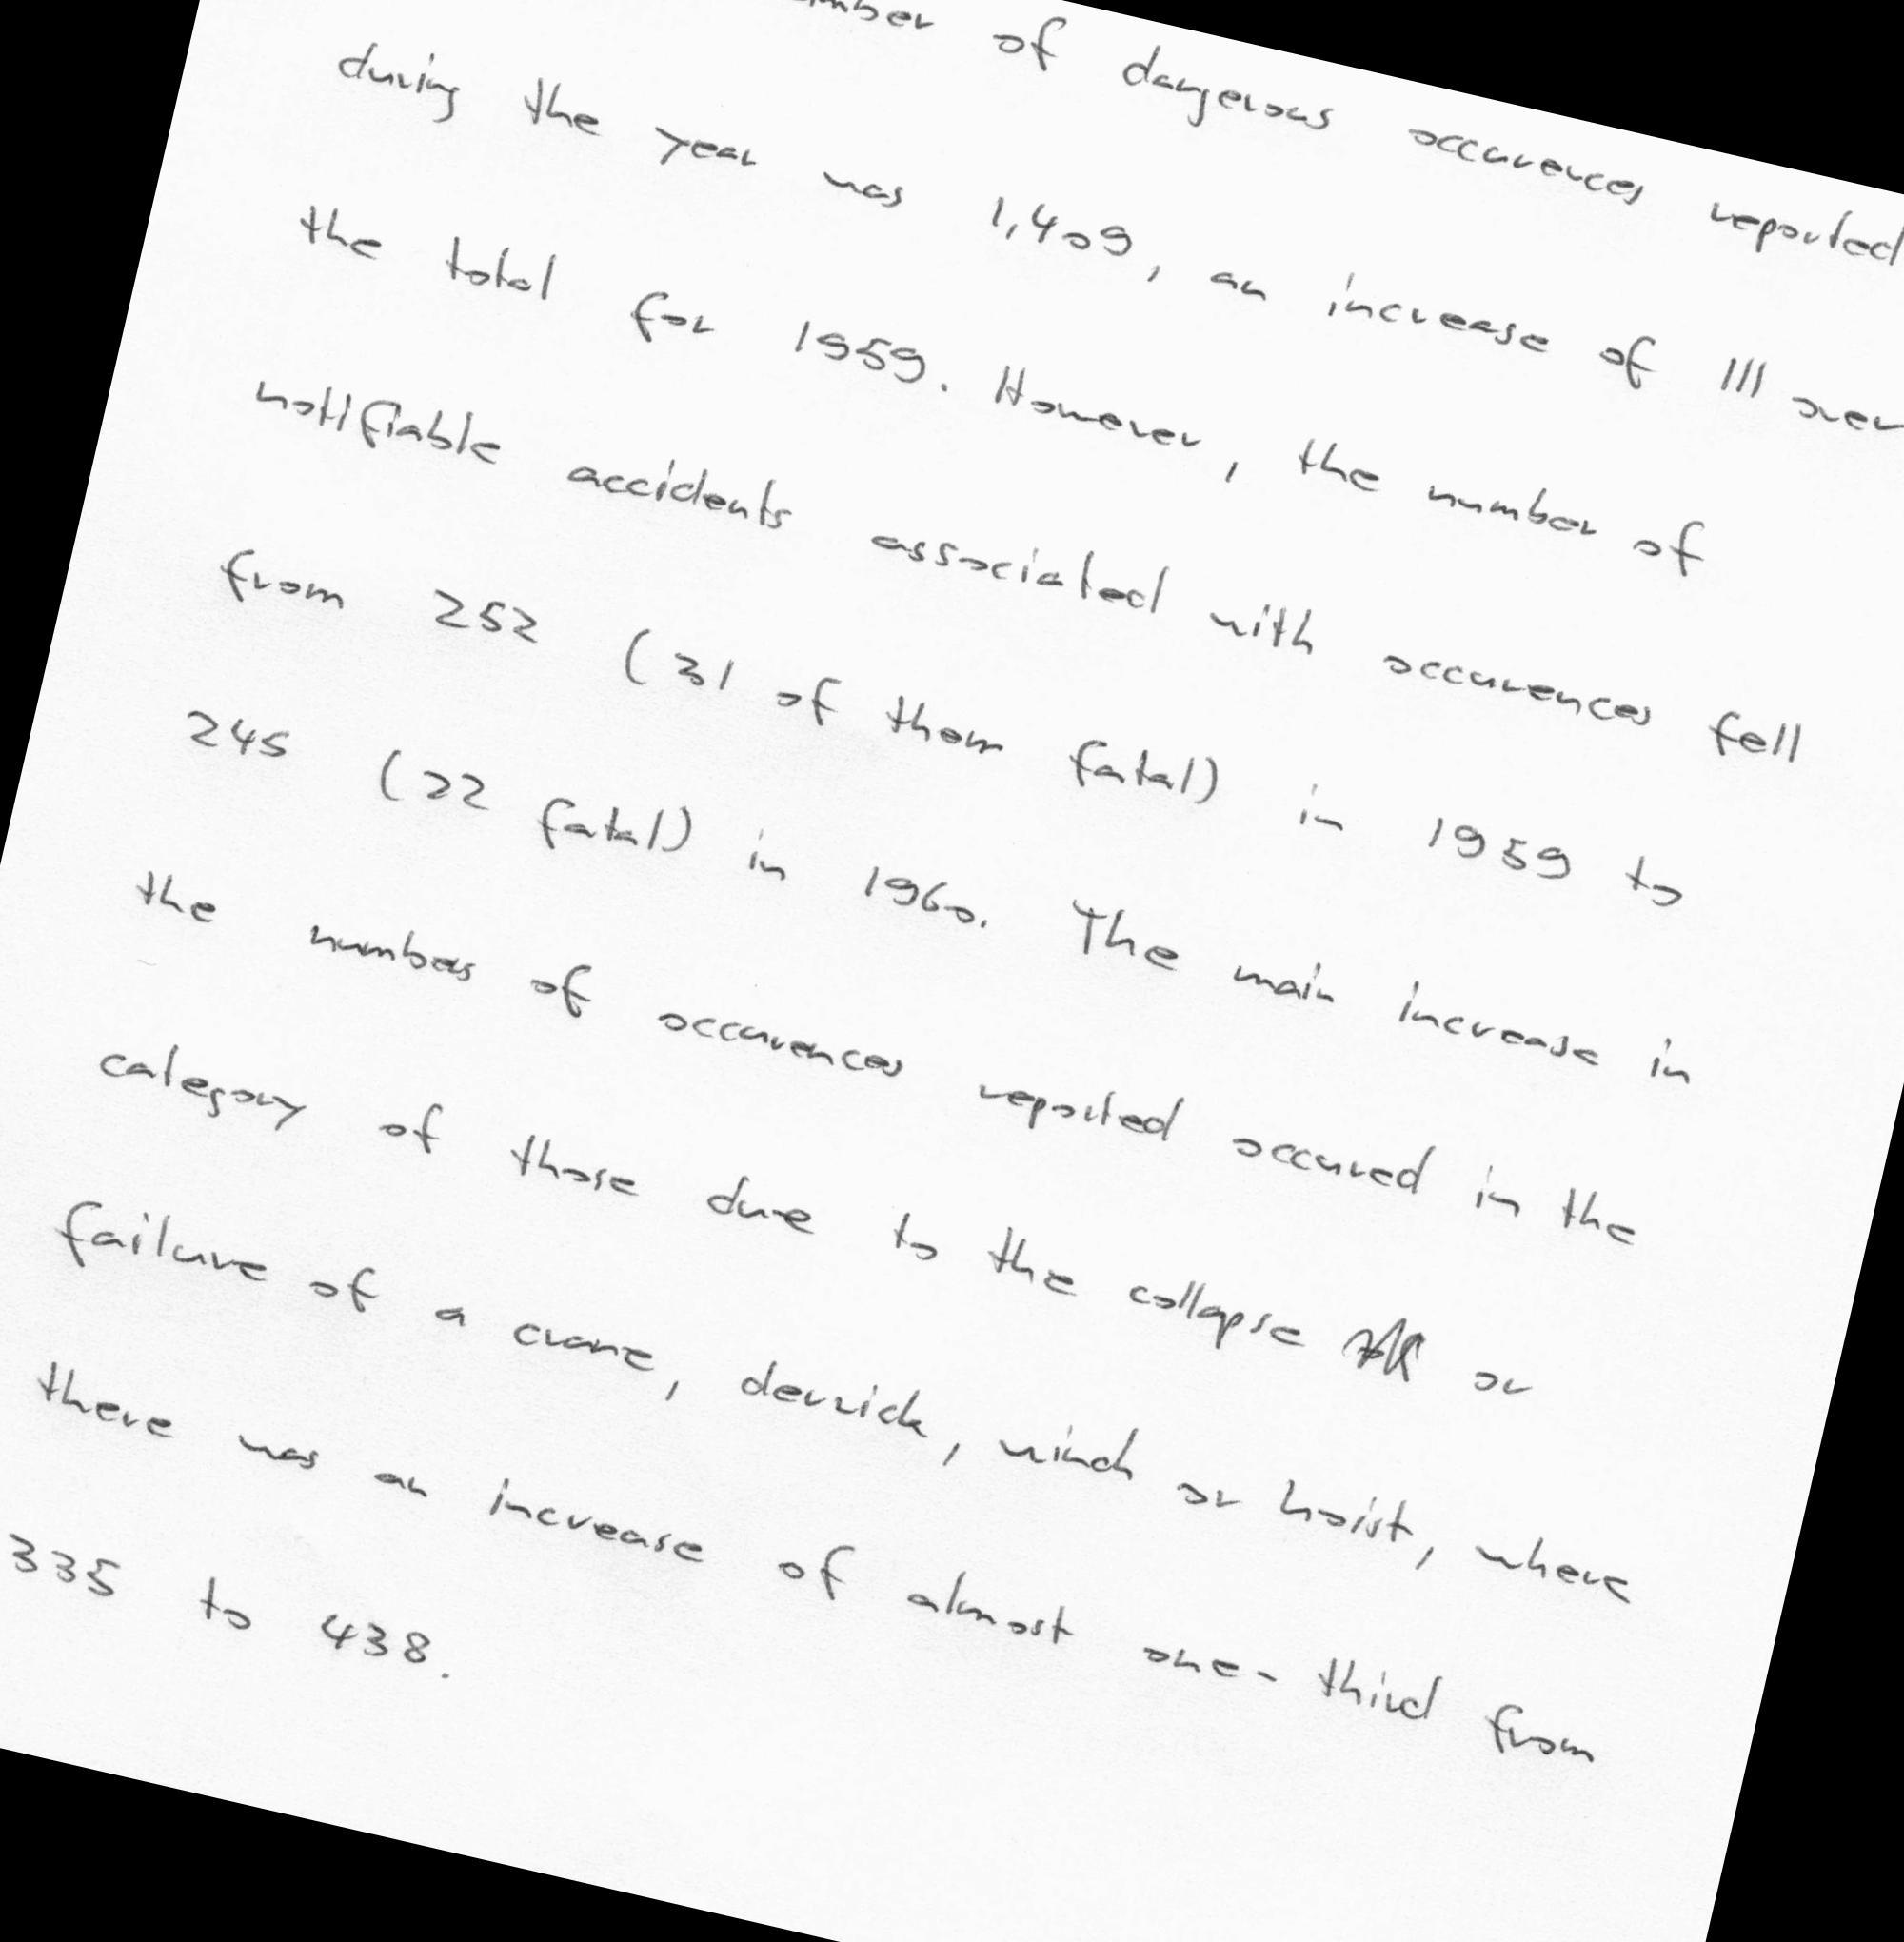 of dangerous occurences reported
during the year was 1,409, an increase of 111 over
the total for 1959. However, the number of
notifiable accidents associated with occurences fell
from 252 (31 of them fatal) in 1959 to
245 (22 fatal) in 1960. The main increase in
the numbers of occurences reported occured in the
category of those due to the collapse or
failure of a crane, derrick, winch or hoist, where
there was an increase of almost one-third from
335 to 438.